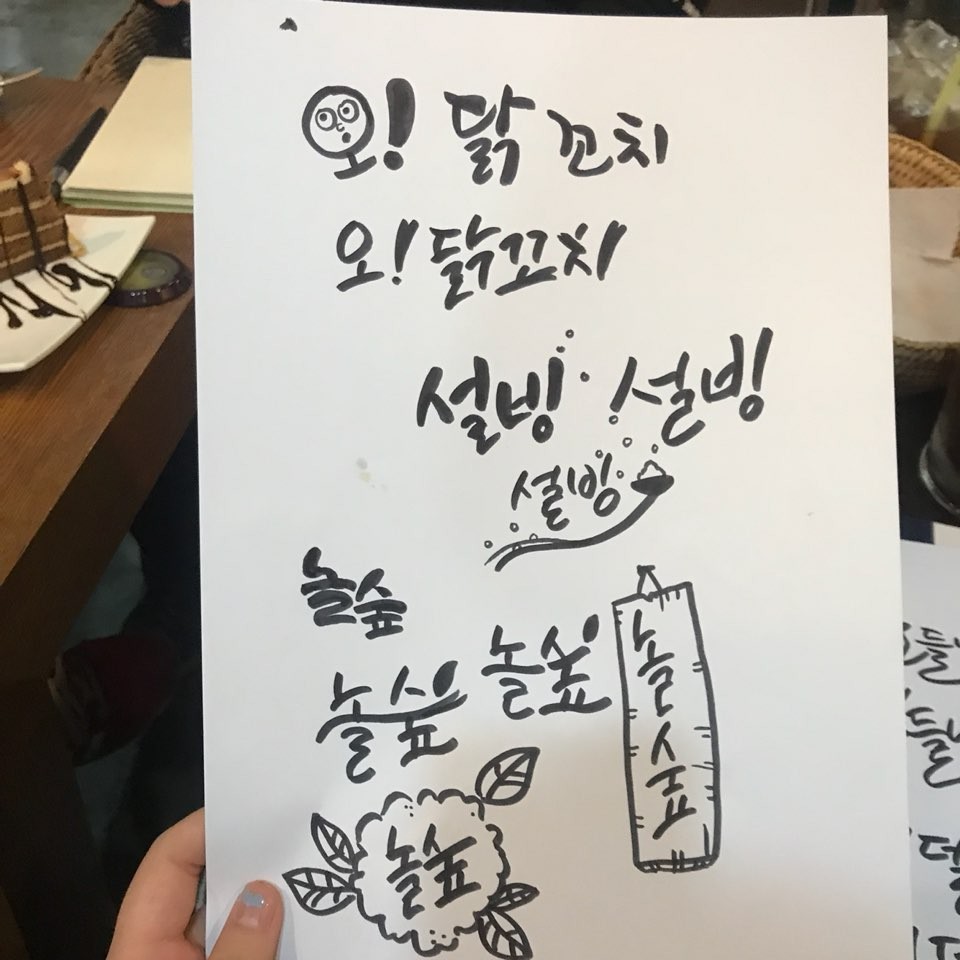 오! 닭꼬치
오! 닭꼬치
설빙 설빙
설빙
놀숲
놀숲
놀숲
놀숲
놀숲